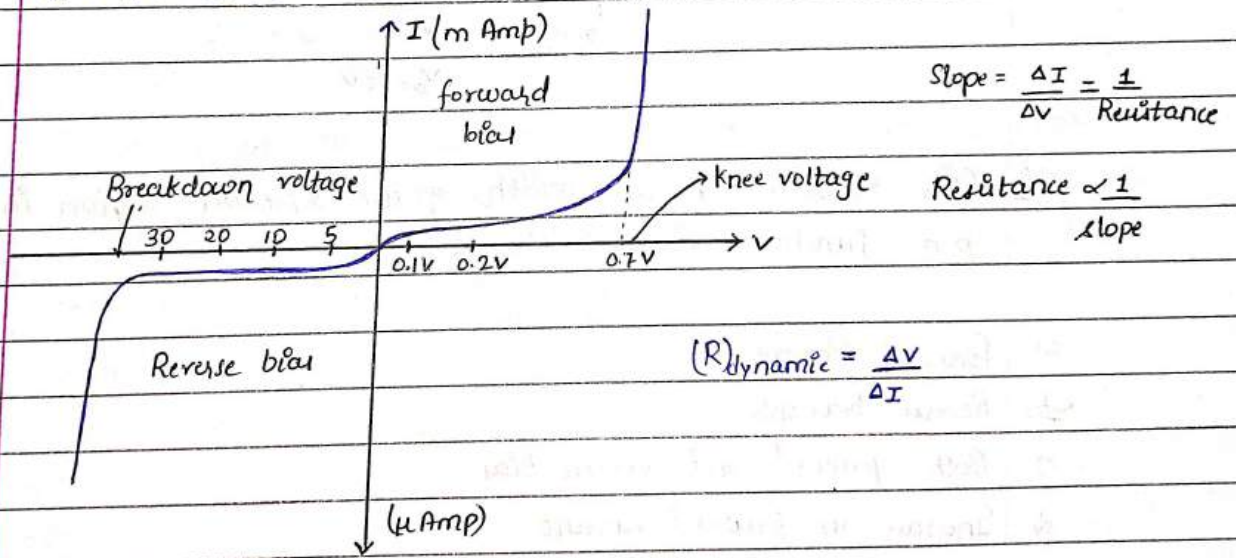 I (m Amp)
forward
bias
Slope = ΔI/ΔV = 1/Resistance
Breakdown voltage
knee voltage
Resistance ∝ 1/slope
30 20 10 5
0.1V 0.2V 0.7V
V
Reverse bias
(R)dynamic = ΔV/ΔI
(μ Amp)